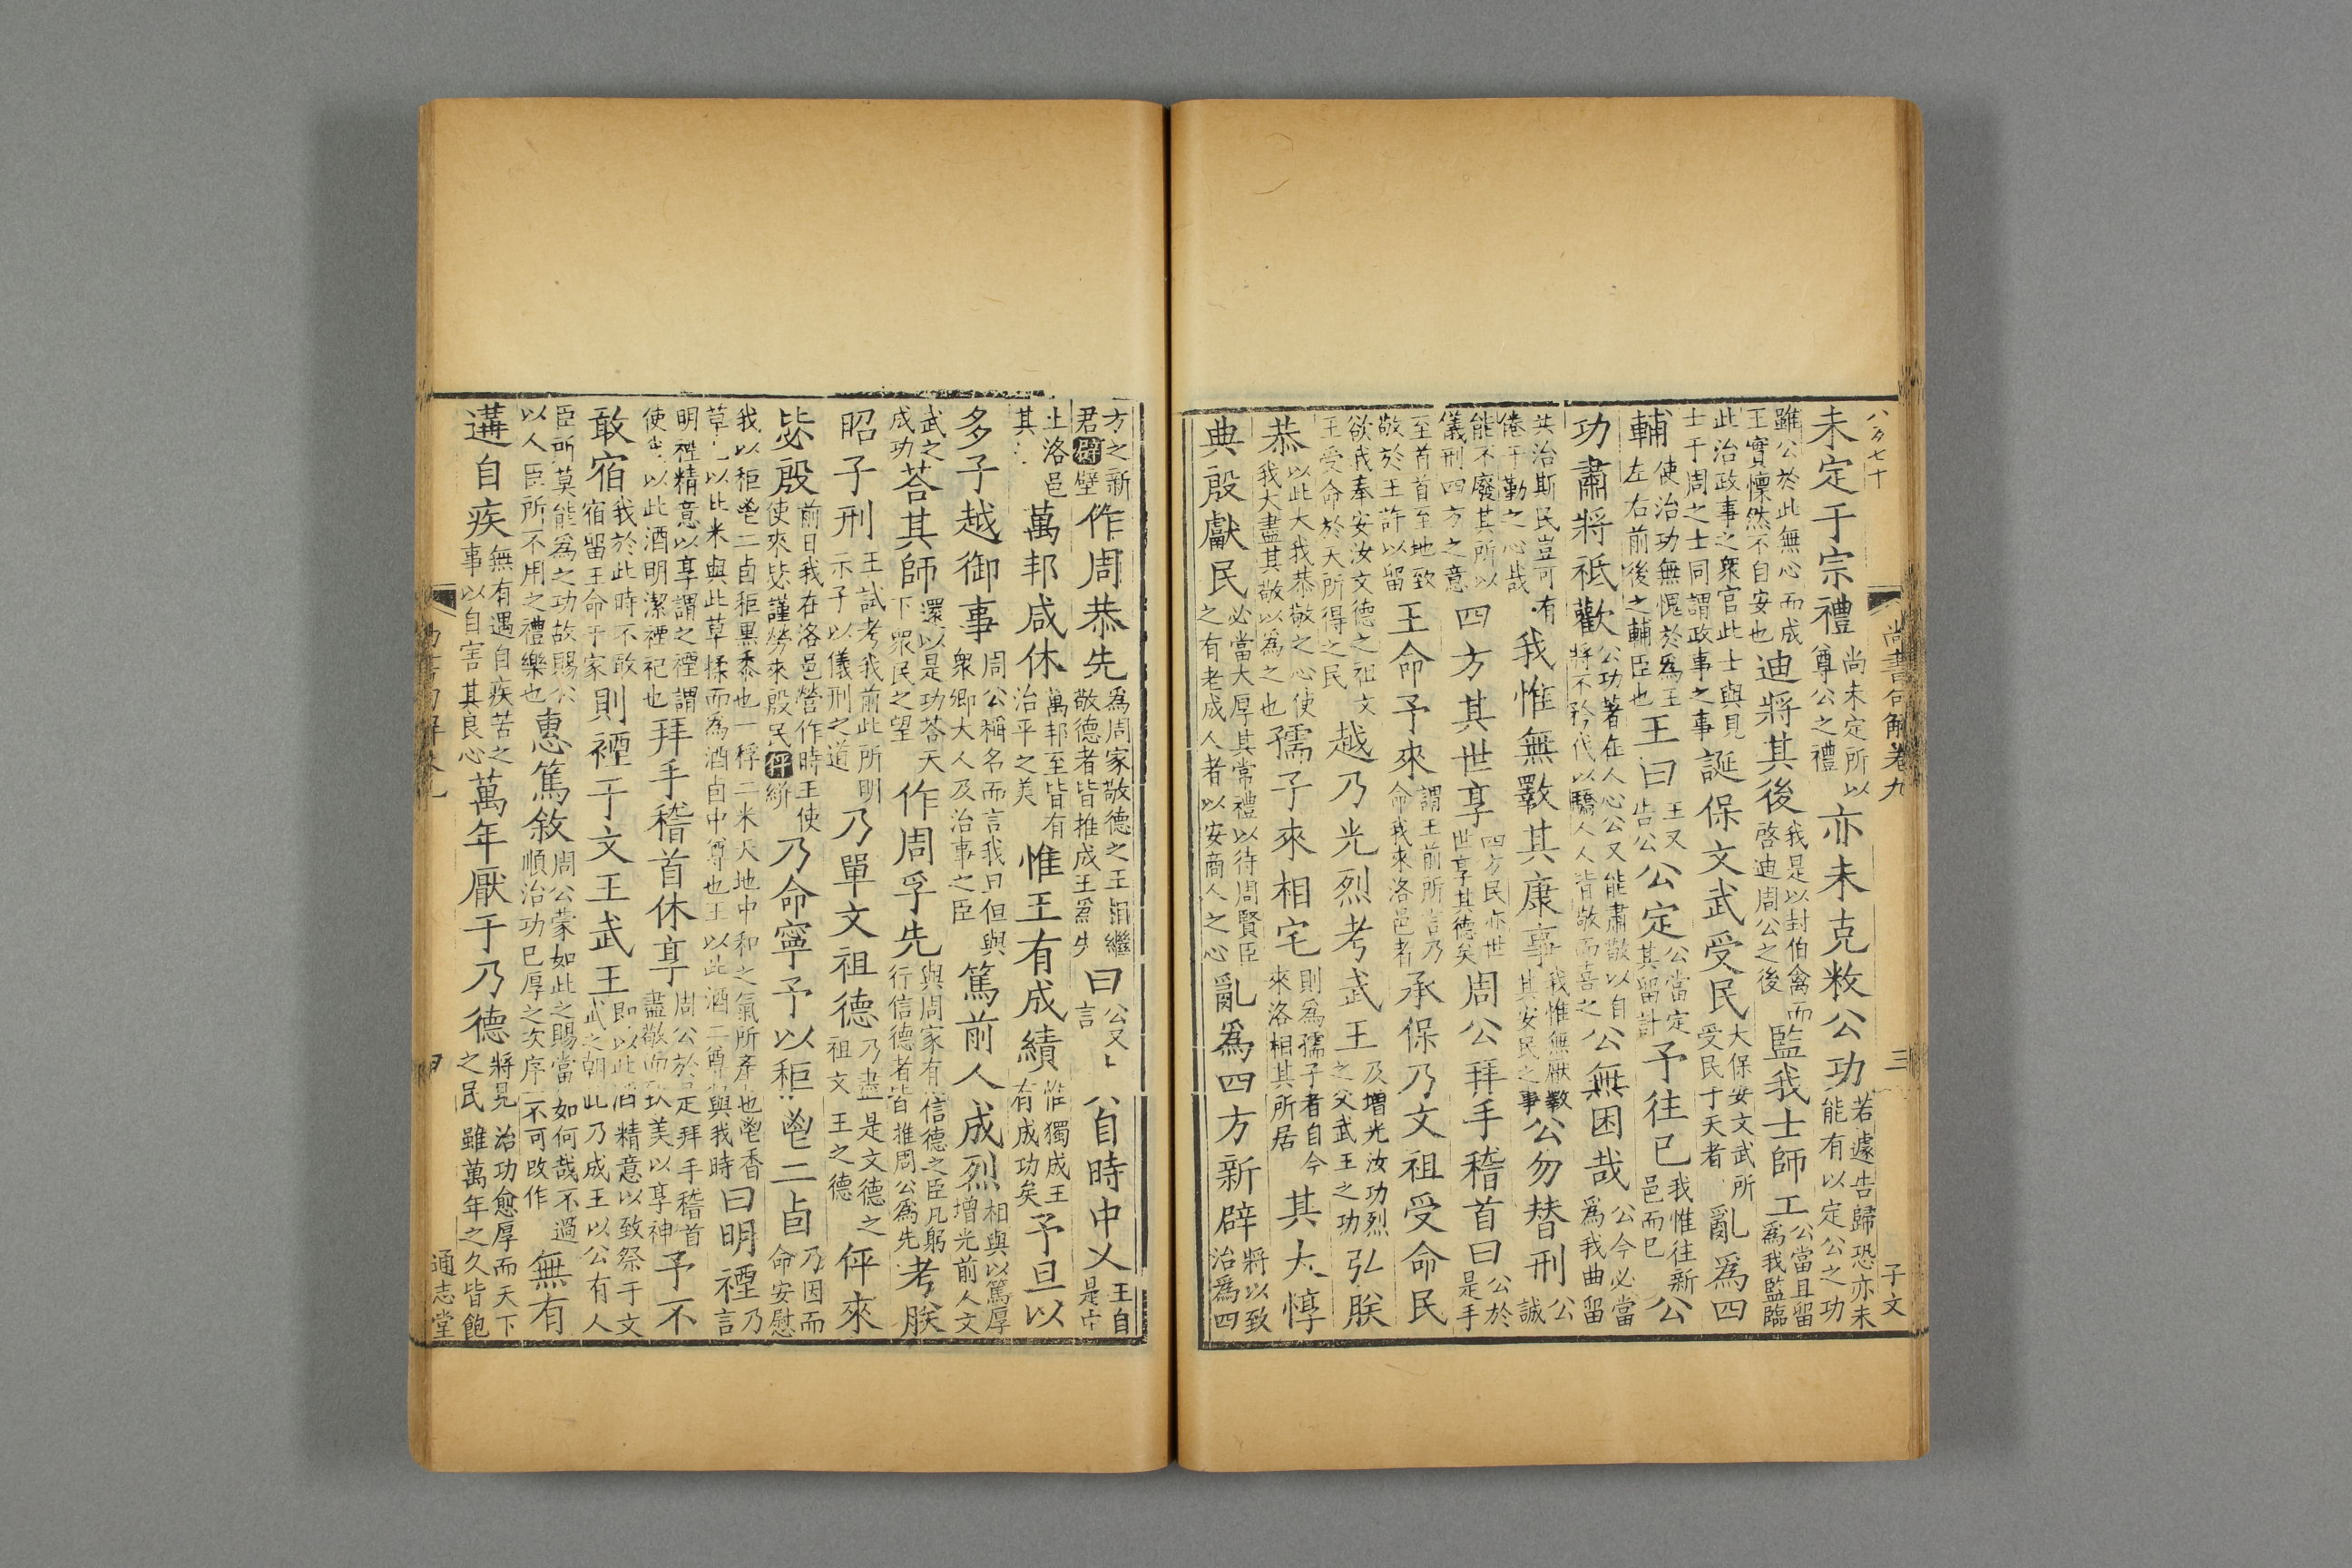 尚書句解卷九　三　子文
未定于宗禮尚未定所以尊公之禮亦未克敉公功若遽告歸恐亦未能有以定公之功
雖公於此無心而成王實懍然不自安也迪將其後我是以封伯禽而啓迪周公之後監我士師工公當且留爲我監臨
此治政事之衆官此士與見士于周之士同謂政事之事誕保文武受民大保安文武所受民于天者亂爲四
輔使治功無愧於爲王左右前後之輔臣也王曰王又告公公定公當定其留計予往已我惟往新邑而已公
功肅將祗歡公功著在人心公又能肅敬以自將不矜伐以驕人人皆敬而喜之公無困哉公今必當爲我曲留
共治斯民豈可有倦于勤之心哉我惟無斁其康事我惟無厭斁其安民之事公勿替刑公誠
能不廢其所以儀刑四方之意四方其世享四方民亦世世享其德矣周公拜手稽首曰公於是手
至首首至地致敬於王許以留王命予來謂王前所言乃命我來洛邑者承保乃文祖受命民
欲我奉安汝文德之祖文王受命於天所得之民越乃光烈考武王及增光汝功烈之父武王之功弘朕
恭以此大我恭敬之心使我大盡其敬以為之也孺子來相宅則爲孺子者自今來洛相其所居其大惇
典殷獻民必當大厚其常禮以待周賢臣之有老成人者以安商人之心亂爲四方新辟將以致治爲四
方之新君辟壁作周恭先爲周家敬德之王繼敬德者皆推成王爲先曰公又言自時中乂王自是中
土洛邑其萬邦咸休萬邦至皆有治平之美惟王有成績惟獨成王有成功矣予旦以
多子越御事周公稱名而言我旦但與衆卿大人及治事之臣篤前人成烈相與以篤厚增光前人文
武之成功荅其師還以是功荅天下衆民之望作周孚先與周家有信德之臣凡躬行信德者皆推周公爲先考朕
昭子刑王試考我前此所明示子以儀刑之道乃單文祖德乃盡是文德之祖文王之德伻來
毖殷前日我在洛邑營作時王使使來毖謹勞來殷民伻絣乃命寧予以秬鬯二卣乃因而命安慰
我以秬鬯二卣秬黑黍也一稃二米天地中和之氣所產也鬯香草以此米與此草揉而為酒卣中尊也王以此酒二尊與我時曰明禋乃言
明禋精意以享謂之禋謂使以此酒明潔禋祀也拜手稽首休享周公於是拜手稽首盡敬而致美以享神予不
敢宿我於此時不敢宿留王命于家則禋于文王武王即以此酒精意以致祭于文武之朝此乃成王以公有人
臣所莫能爲之功故賜公以人臣所不用之禮樂也惠篤敘周公蒙如此之賜當如何哉不過順治功已厚之次序不可改作無有
遘自疾無有遇自疾苦之事以自害其良心萬年厭于乃德將見治功愈厚而天下之民雖萬年之久皆飽
通志堂